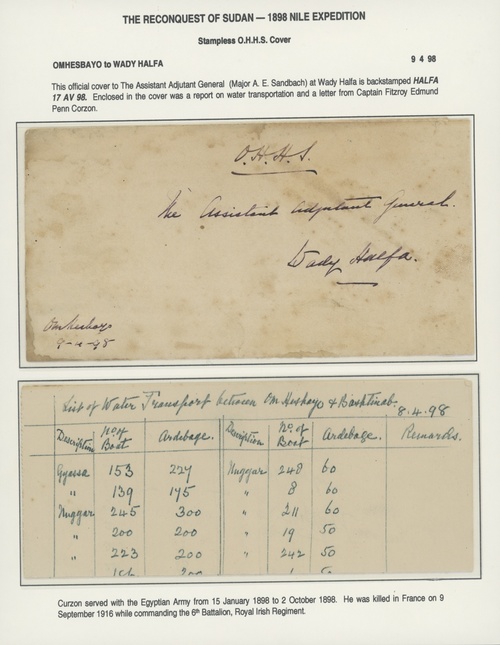 THE RECONQUEST OF SUDAN — 1898 NILE EXPEDITION
Stampless O.H.H.S. Cover
OMHESBAYO to WADY HALFA 9 4 98
This official cover to The Assistant Adjutant General (Major A. E. Sandbach) at Wady Halfa is backstamped HALFA
17 AV 98. Enclosed in the cover was a report on water transportation and a letter from Captain Fitzroy Edmund
Penn Corzon.
O.H.H.S.
The Assistant Adjutant General.
Wady Halfa.
Omheshayo
9-4-98
List of Water Transport between Om Heshayo & Bashtinab. 8.4.98
Description No. of Boat Ardebage. Description No. of Boat Ardebage. Remarks.
Gyassa 153 227 Nuggar 248 60
" 139 175 " 8 60
Nuggar 245 300 " 211 60
" 200 200 " 19 50
" 223 200 " 242 50
Curzon served with the Egyptian Army from 15 January 1898 to 2 October 1898. He was killed in France on 9
September 1916 while commanding the 6th Battalion, Royal Irish Regiment.